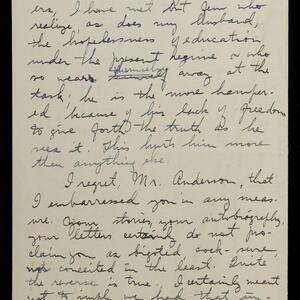 ers, I have met but few who
realize, as does my husband,
the hopelessness of education
under the present regime or who
so wears himself away at the
task; he is the more hamper-
ed because of his lack of freedom
to give forth the truth as he
sees it. This hurts him more
than anything else.
I regret, Mr. Anderson, that
I embarressed you in any meas-
ure. Your stories, your autobiography,
your letters certainly do not pro-
claim you as bigoted, cock-sure,
nor conceited in the least. Quite
the reverse is true. I certainly meant
not to imply we had that in-